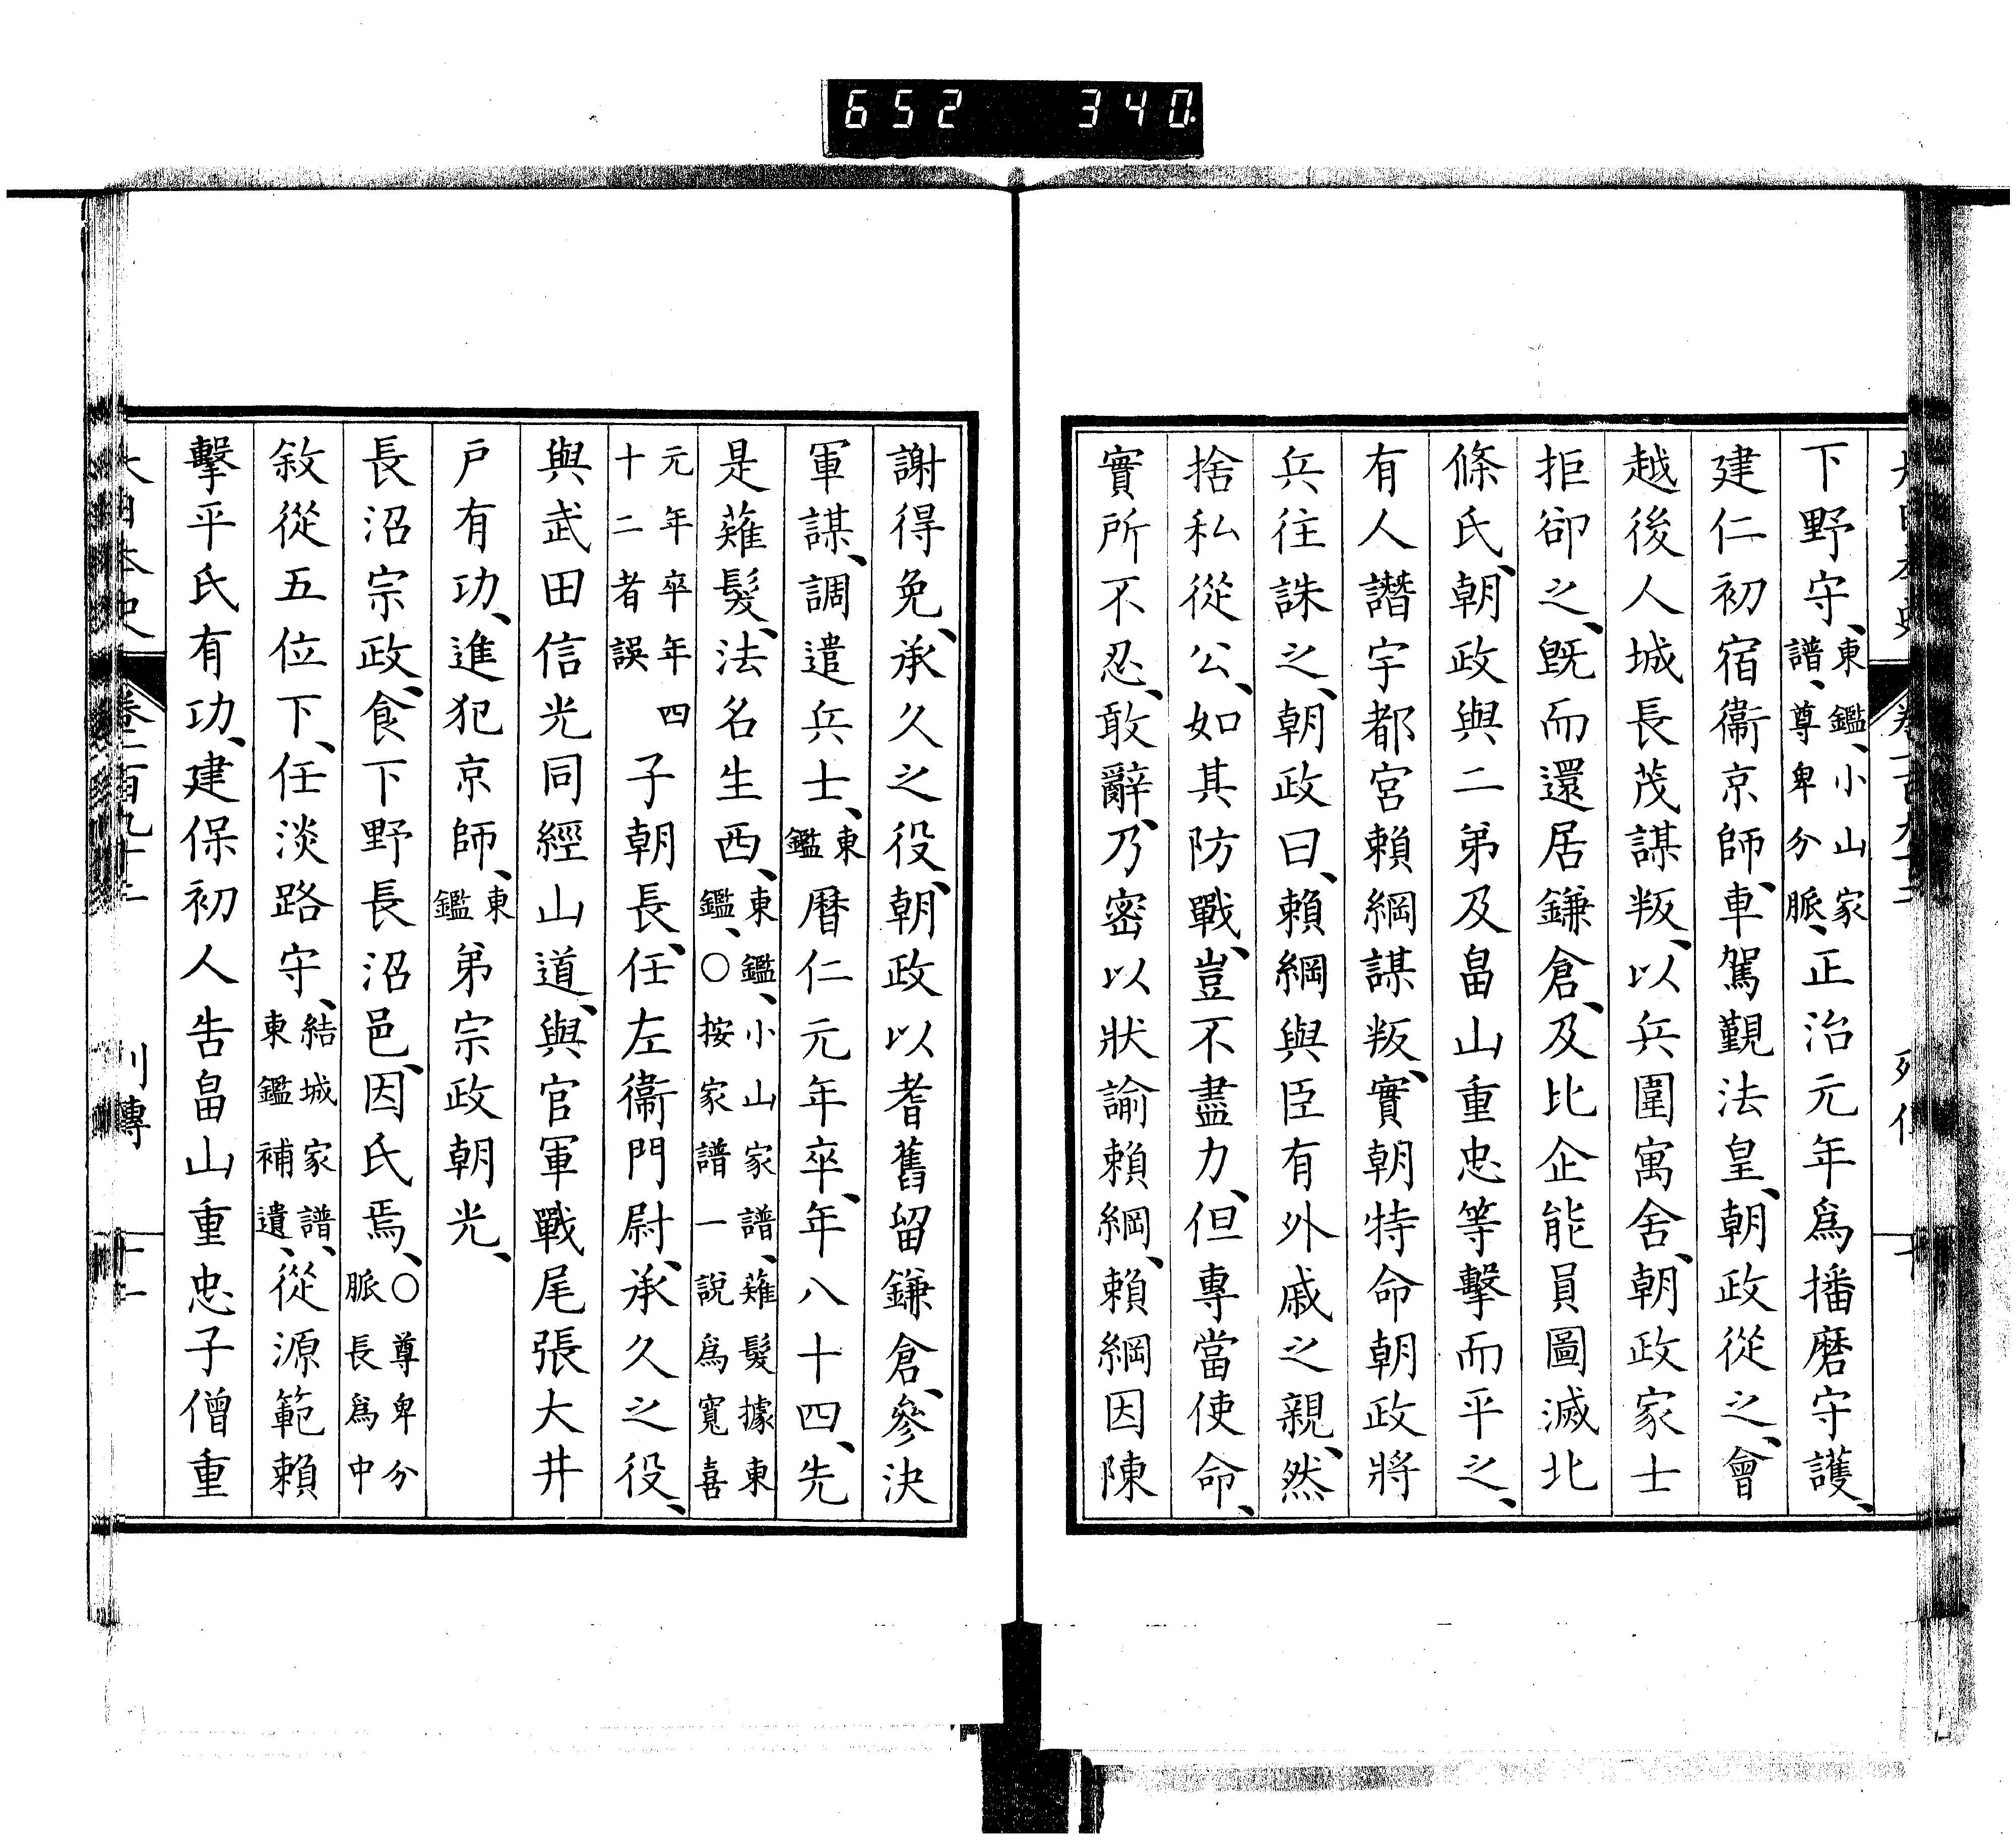 652 340
下野守、東鑑、小山家譜、尊卑分脈、正治元年爲播磨守護、
建仁初宿衞京師、車駕覲法皇、朝政從之、會
越後人城長茂謀叛、以兵圍寓舍、朝政家士
拒卻之、旣而還居鎌倉、及比企能員圖滅北
條氏、朝政與二弟及畠山重忠等擊而平之、
有人譖宇都宮賴綱謀叛、實朝特命朝政將
兵往誅之、朝政曰、賴綱與臣有外戚之親、然
捨私從公、如其防戰、豈不盡力、但專當使命、
實所不忍、敢辭、乃密以狀諭賴綱、賴綱因陳
謝得免、承久之役、朝政以耆舊留鎌倉、參決
軍謀、調遣兵士、東鑑曆仁元年卒、年八十四、先
是薙髮、法名生西、東鑑、小山家譜、薙髮據東鑑、○按家譜一說爲寬喜
元年卒年四十二者誤子朝長、任左衞門尉、承久之役、
與武田信光同經山道、與官軍戰尾張大井
戶有功、進犯京師、東鑑弟宗政朝光、
長沼宗政、食下野長沼邑、因氏焉、○尊卑分脈長爲中
敘從五位下、任淡路守、結城家譜、東鑑補遺、從源範賴
擊平氏有功、建保初人告畠山重忠子僧重
大日本史 卷一百九十二 列傳